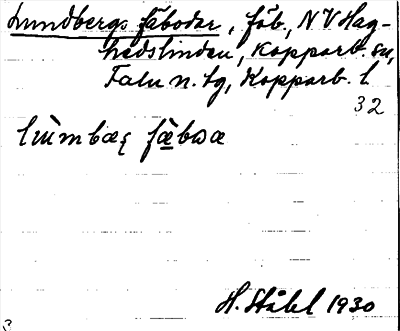 Lundbergs fäbodar, fäb., NV Hag-
hedslindan, Kopparb. sn,
Falu n. tg, Kopparb. l
32
lùmbæʂ fæ̀bωæ
H. Ståhl 1930